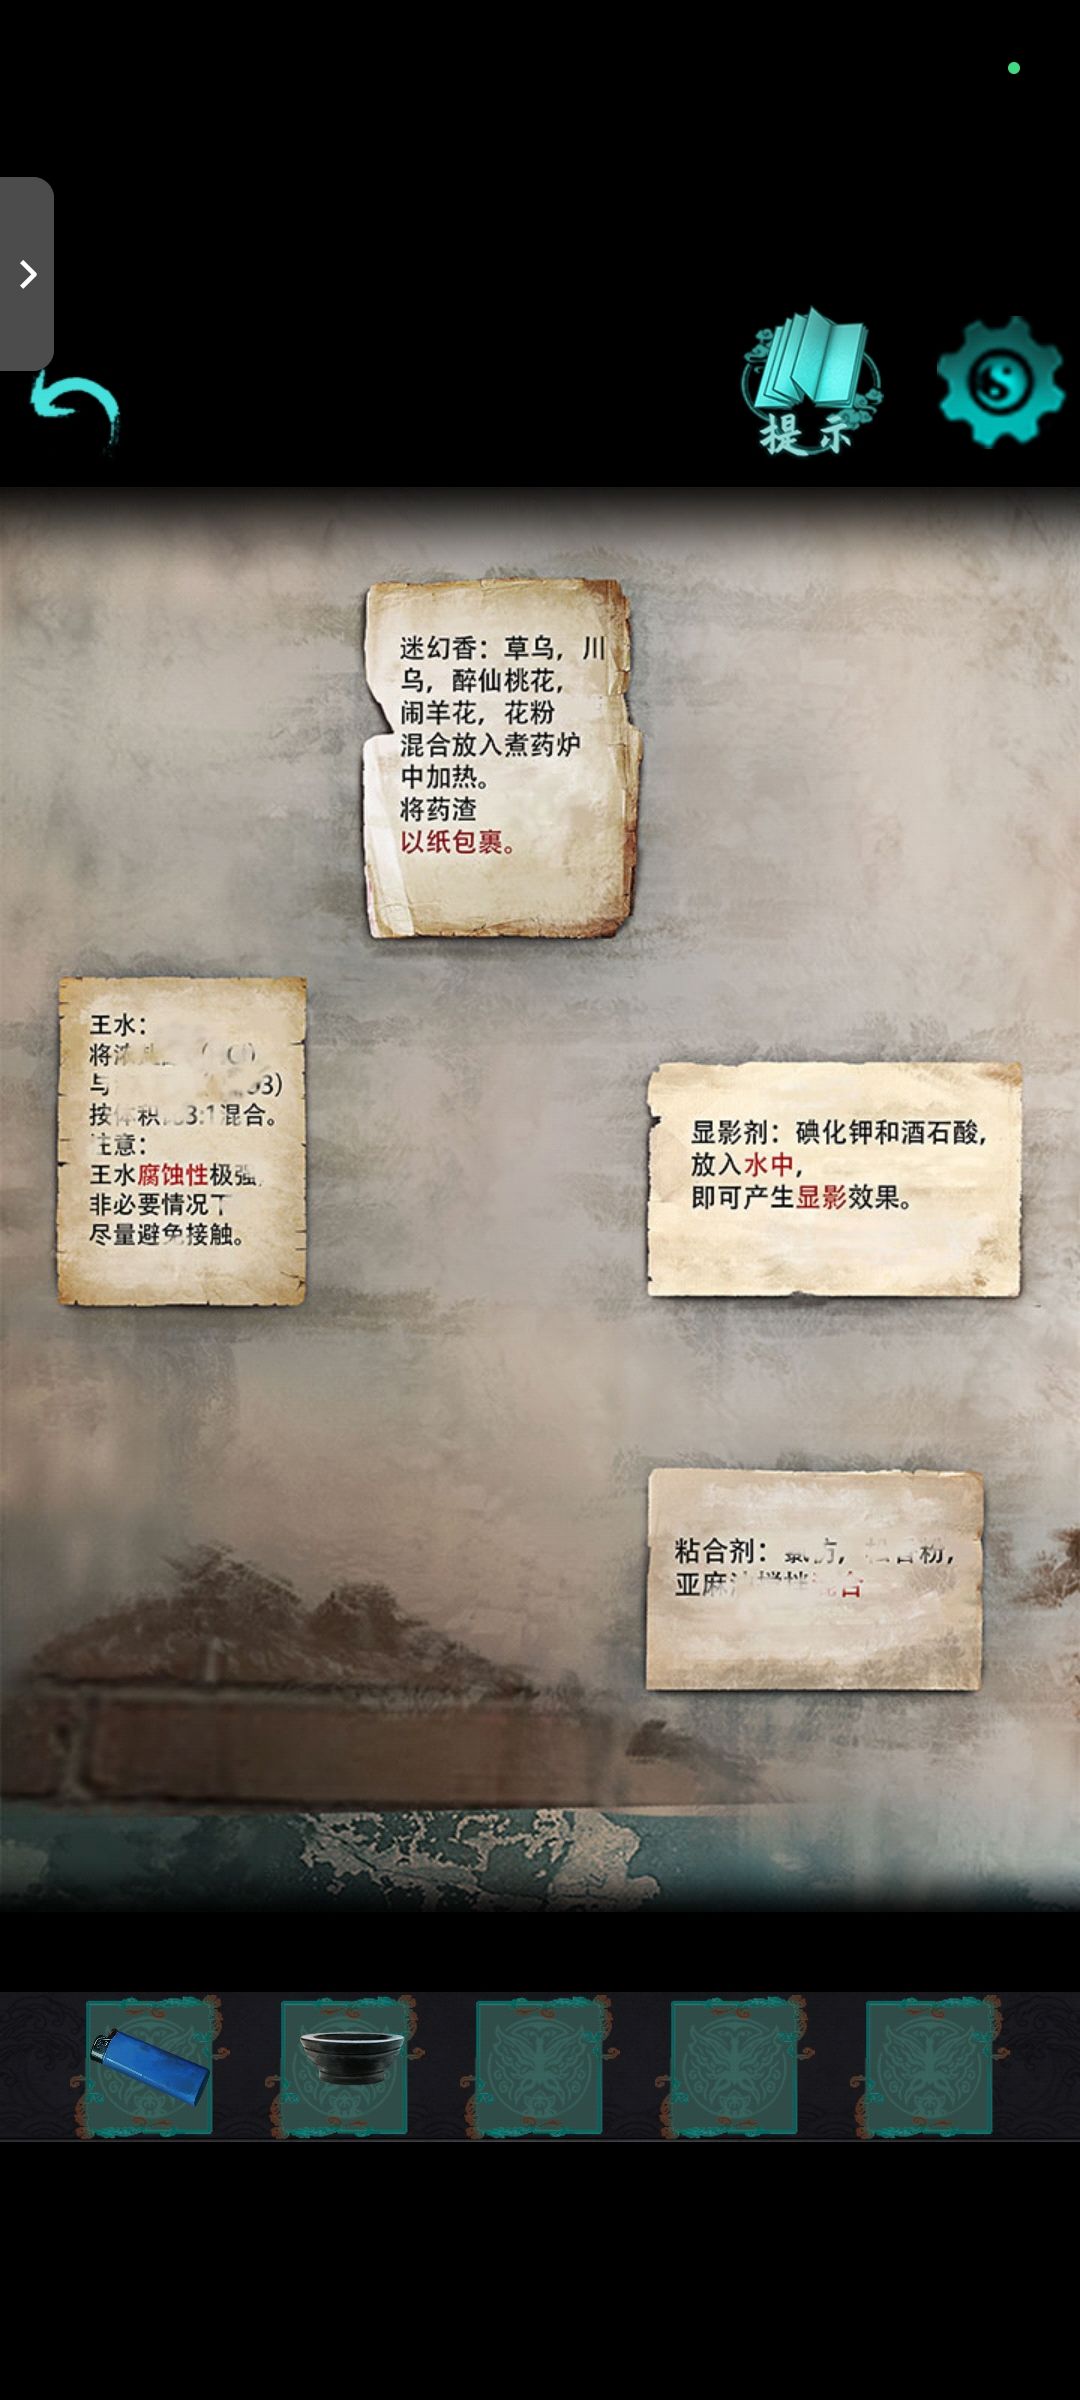 提示
迷幻香：草乌，川
乌，醉仙桃花，
闹羊花，花粉
混合放入煮药炉
中加热。
将药渣
以纸包裹。
王水：
将浓
与 3)
按体积 3:1混合。
注意：
王水腐蚀性极强，
非必要情况下
尽量避免接触。
显影剂：碘化钾和酒石酸，
放入水中，
即可产生显影效果。
粘合剂： 粉，
亚麻